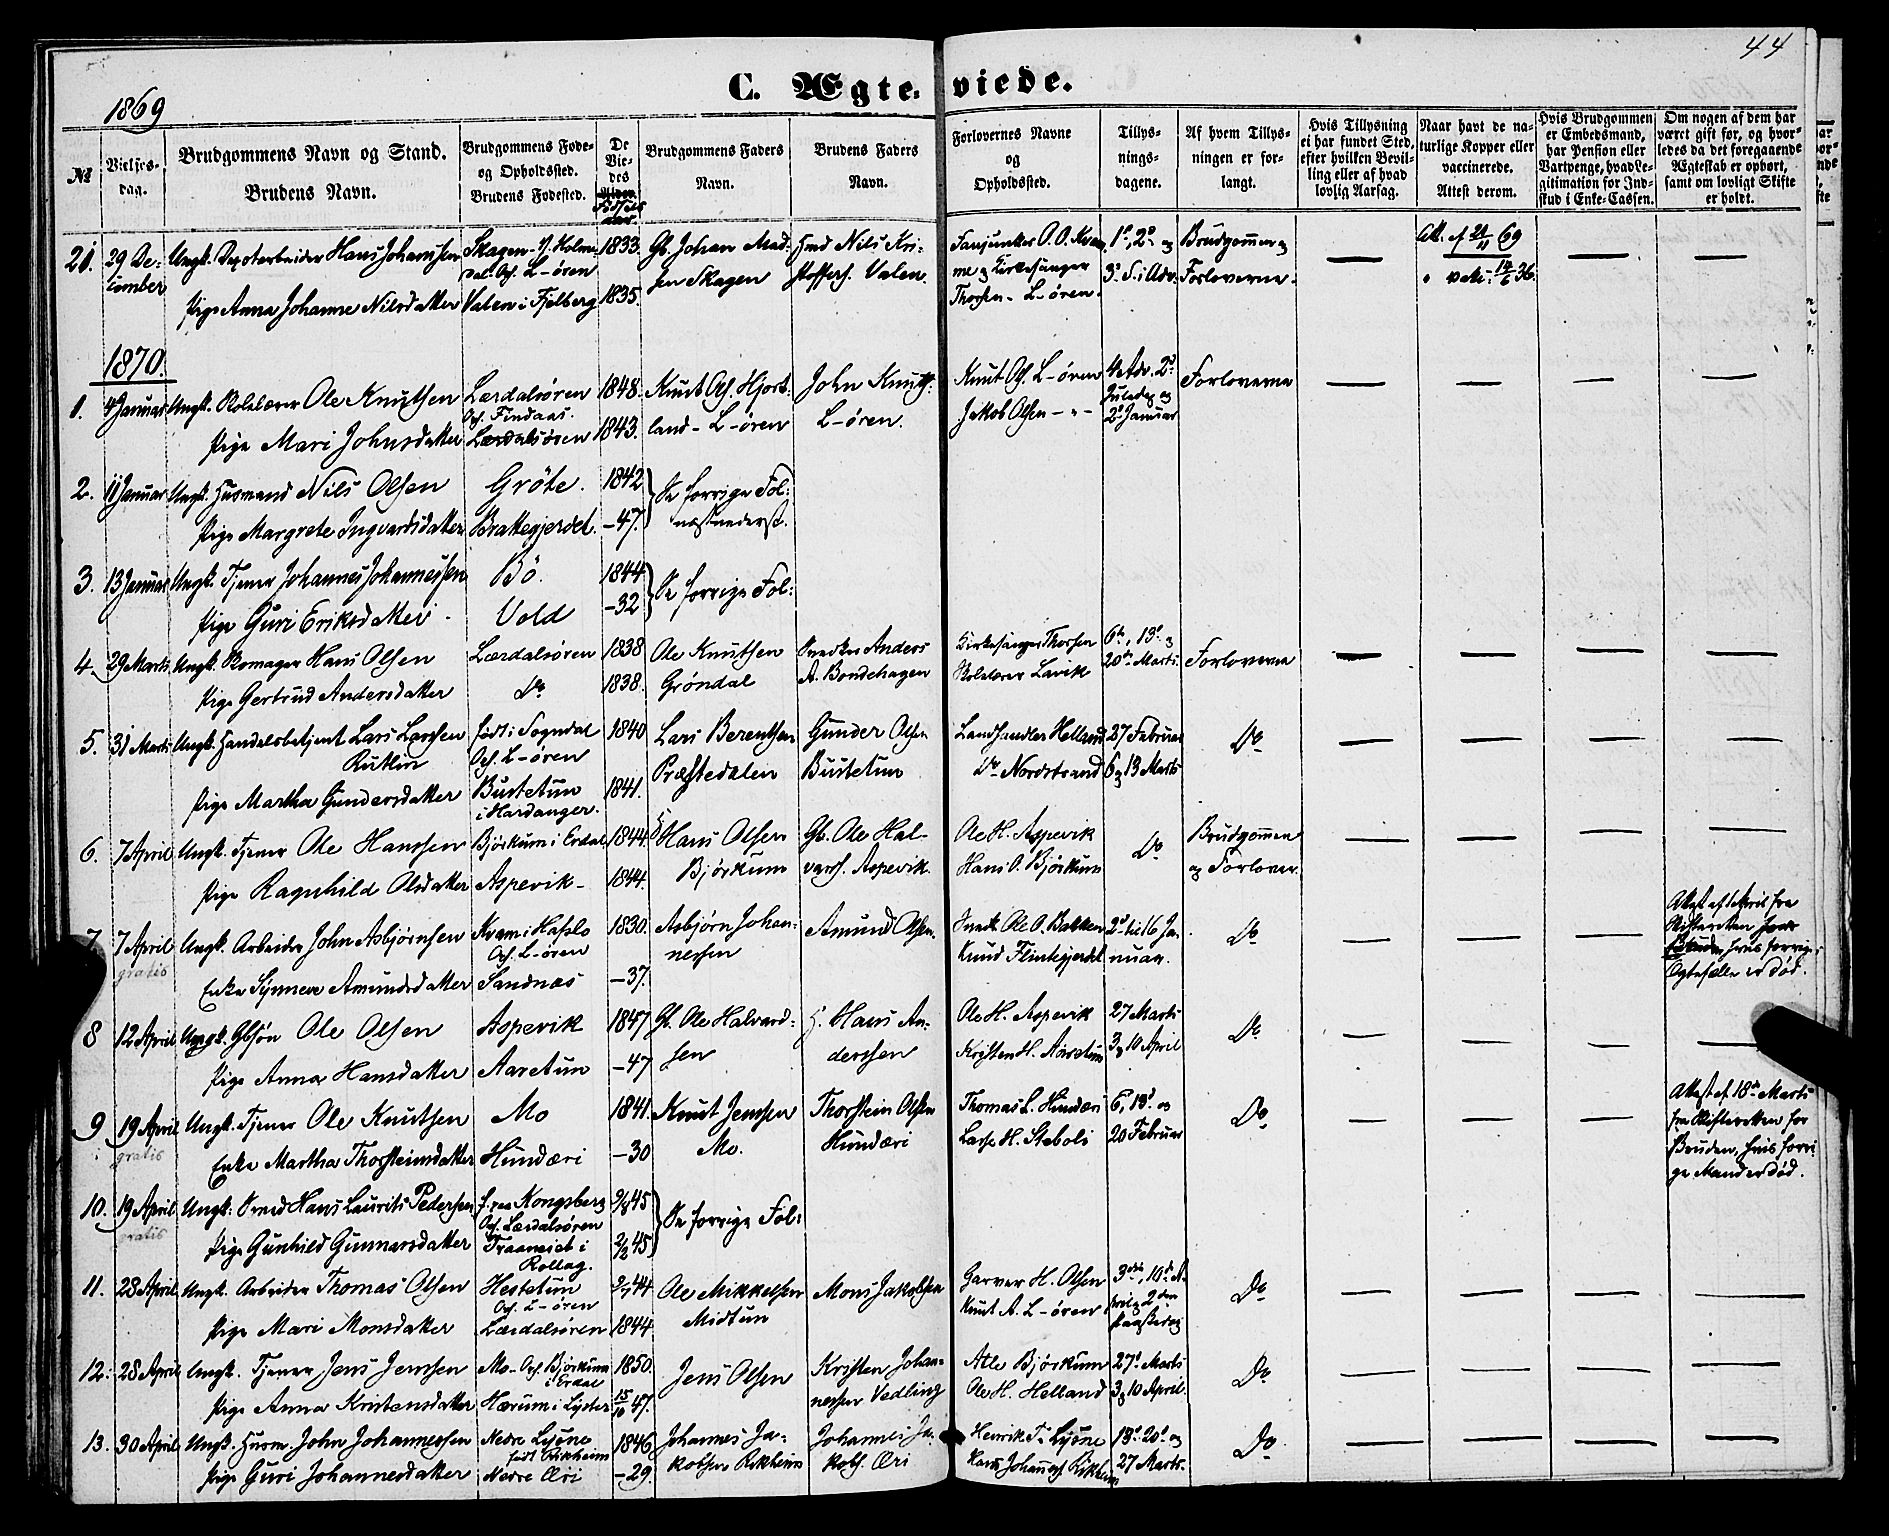 44
C. Ægteviede.
1869
№
Vielses-
dag.
Brudgommens Navn og Stand.
Brudens Navn.
Brudgommens Føde-
og Opholdssted.
Brudens Fødested.
De
Vie-
des
Fødsels
aar.
Brudgommens Faders
Navn.
Brudens Faders
Navn.
Forlovernes Navne
og
Opholdssted.
Tillys-
nings-
dagene.
Af hvem Tillys-
ningen er for-
langt.
Hvis Tillysning
ei har fundet Sted,
efter hvilken Bevil-
ling eller af hvad
lovlig Aarsag.
Naar havt de na-
turlige Kopper eller
vaccinerede.
Attest derom.
Hvis Brudgommen
er Embedsmand,
har Pension eller
Vartpenge, hvad Le-
gitimation for Ind-
skud i Enke-Cassen.
Om nogen af dem har
været gift før, og hvor-
ledes da det foregaaende
Ægteskab er ophørt,
samt om lovligt Skifte
er holdt.
21. 29 De-
cember
Ungk. Hans Johanssen
Pige Anna Johanne Nilsdatter
Skagen
L-ören
Valen i Fjelberg
1833.
1835.
Gb. Johan Mad-
sen Skagen
Hmd Nils Kri-
stoffers. Valen.
Fanjunker O. O.
og Kirkesanger
Thorsen - L-ören.
1ste, 2d og
3d S. i Adv.
Brudgommen og
Forloverne.
Att. af 69
36.
1870.
1. 4 Januar Ungk. Skolelærer Ole Knutsen
Pige Mari Johnsdatter
Lærdalsören
Oph. Findaas.
Lærdalsören
1848.
1843.
Knut Ols. Hjort-
land - L-ören
John Knuts.
L-ören.
Knut Ols. L-ören
Jakob Olsen - " -
4de Adv. 2d
Juledag og
2d Januar
Forloverne
2. 11 Januar Ungk. Husmand Nils Olsen
Pige Margrete Ingvardsdatter
Gröte.
Brattegjerdet.
1842
-47.
Se forrige Fol:
næstnederst.
3. 13 Januar Ungk. Tjener Johannes Johannessen
Pige Guri Eriksdatter
Bö.
Vold
1844
-32
Se forrige Fol:
4. 29 Marts Ungk. Skomager Hans Olsen
Pige Gertrud Andersdatter
Lærdalsören
Do
1838
1838.
Ole Knutsen
Gröndal
Snedker Anders
A. Bondehagen
Kirkesanger Thorsen
Skolelærer Lavik
6te, 13d og
20de Marts.
Forloverne
5. 31 Marts Ungk. Handelsbetjent Lars Larssen
Rutlin
Pige Martha Gundersdatter
født i Sogndal
Oph. L-ören
Bustetun
i Hardanger.
1840
1841.
Lars Berentsen
Præstedalen
Gunder Olsen
Bustetun
Landhandler Helland
Do Nordstrand
27 Februar
6 og 13 Marts
Do
6. 7 April Ungk. Tjener Ole Hanssen
Pige Ragnhild Olsdatter
Bjørkum i Erdal
Aspevik
1844.
1844.
Hans Olsen
Bjørkum
Gb. Ole Hal-
vars. Aspevik.
Ole H. Aspevik
Hans O. Bjørkum
Do
Brudgommen
og Forlover.
7 7 April
gratis
Ungk. Arbeider John Asbjørnsen
Enke Synneve Amundsdatter
Kvam i Hafslo
Oph. L-ören
Sandnæs
1830.
-37.
Asbjørn Johan-
nessen
Amund Olsen.
Ole O. Bakken
Knud Flintegjerdet
2d til 16 Ja-
nuar.
Do
Attest af 1 April fra
Skifteretten for
Bruden, hvis forrige
Ægtefælle er død.
8 12 April Ungk. Gbsøn Ole Olsen
Pige Anna Hansdatter
Aspevik
Aaretun
1847
-47
Gb. Ole Halvard-
sen
H. Hans An-
derssen
Ole H. Aspevik
Kristen H. Aaretun
27 Marts
3 og 10 April
Do
9 19 April
gratis
Ungk. Tjener Ole Knutsen
Enke Martha Thorsteinsdatter
Mo
Hundæri
1841.
-30
Knut Jenssen
Mo.
Thorstein Olsen
Hundæri
Thomas L. Hundæri
Lasse H. Stebolt
6, 13d og
20 Februar
Do
Attest af 18de Marts
fra Skifteretten for
Bruden, hvis forri-
ge Mand er død.
10. 19 April
gratis
Ungk: Smed Hans Laurits Pedersen
Pige Gunhild Gunnarsdatter
f. paa Kongsberg
Oph. Lærdalsören
i
Rollag.
9/8 45
2/2 45
Se forrige Fol:
11. 28 April Ungk. Arbeider Thomas Olsen
Pige Mari Monsdatter
Hestetun
Oph. L-ören
Lærdalsören
9/7 44
1844
Ole Mikkelsen
Midtun
Mons Jakobsen
Garver H. Olsen
Knut A. L-ören
3die, 10de A-
pril og 2den
Paaskedag
Do
12. 28 April Ungk. Tjener Jens Jenssen
Pige Anna Kristensdatter
Mo - Oph. Bjørkum
i Erdal
Hærum i Lyster
1850.
15/10 47.
Jens Olsen
Kristen Johan-
nessen Vedling
Atle Bjørkum
Ole H. Helland
27d Marts
3 og 10 April.
Do
13. 30 April Ungk. Husm. John Johannessen
Pige Guri Johannesdatter
Nedre Ljöne
født Rikheim
Nedre Æri
1846
-29.
Johannes Ja-
kobsen Rikheim
Johannes Ja-
kobs. Æri
Henrik T. Ljöne
Hans Johannes. Rikheim
13d 20d og
27 Marts.
Do